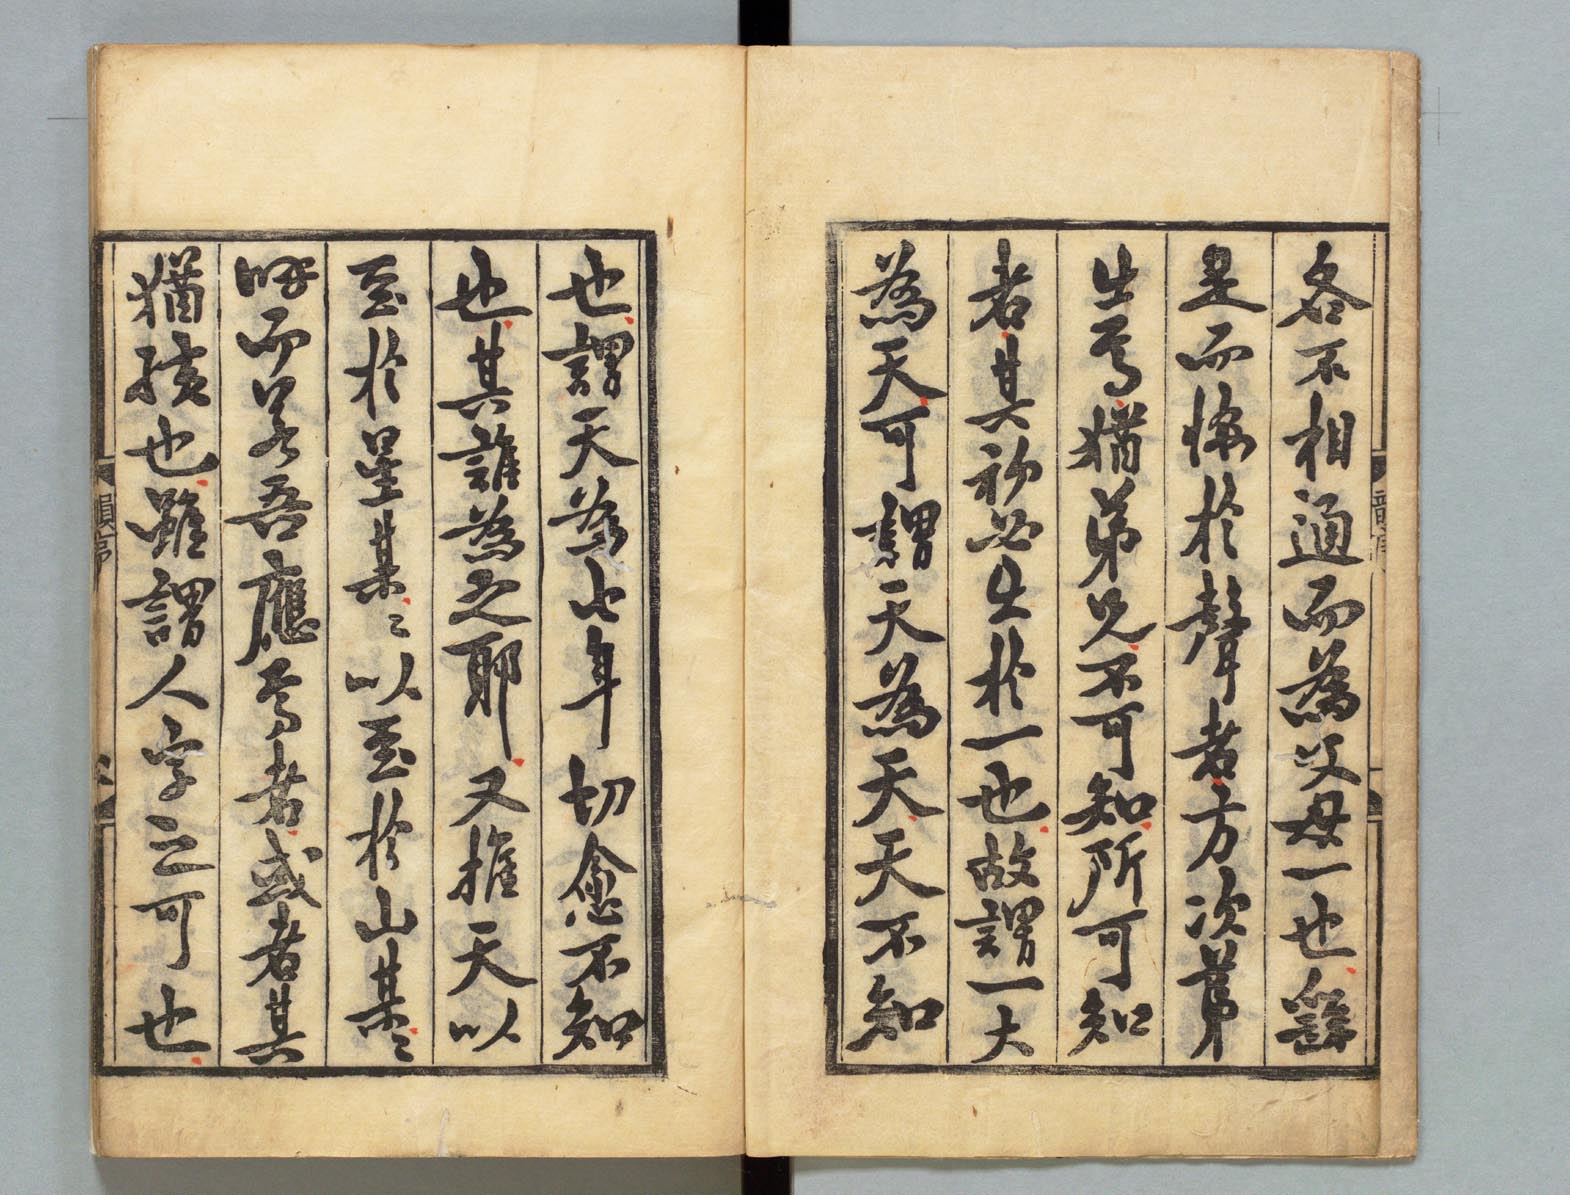 各不相通而為父母一也繇
是而悔於聲者方次第
生焉猶弟兄不可知所可知
者其初必生於一也故謂一大
為天可謂天為天天不知
也謂天為七年切愈不知
也其誰為之耶又推天以
至於星某〻以至於山某〻
呼而若吾應焉者或者其
猶孩也雖謂人字之可也
韻序